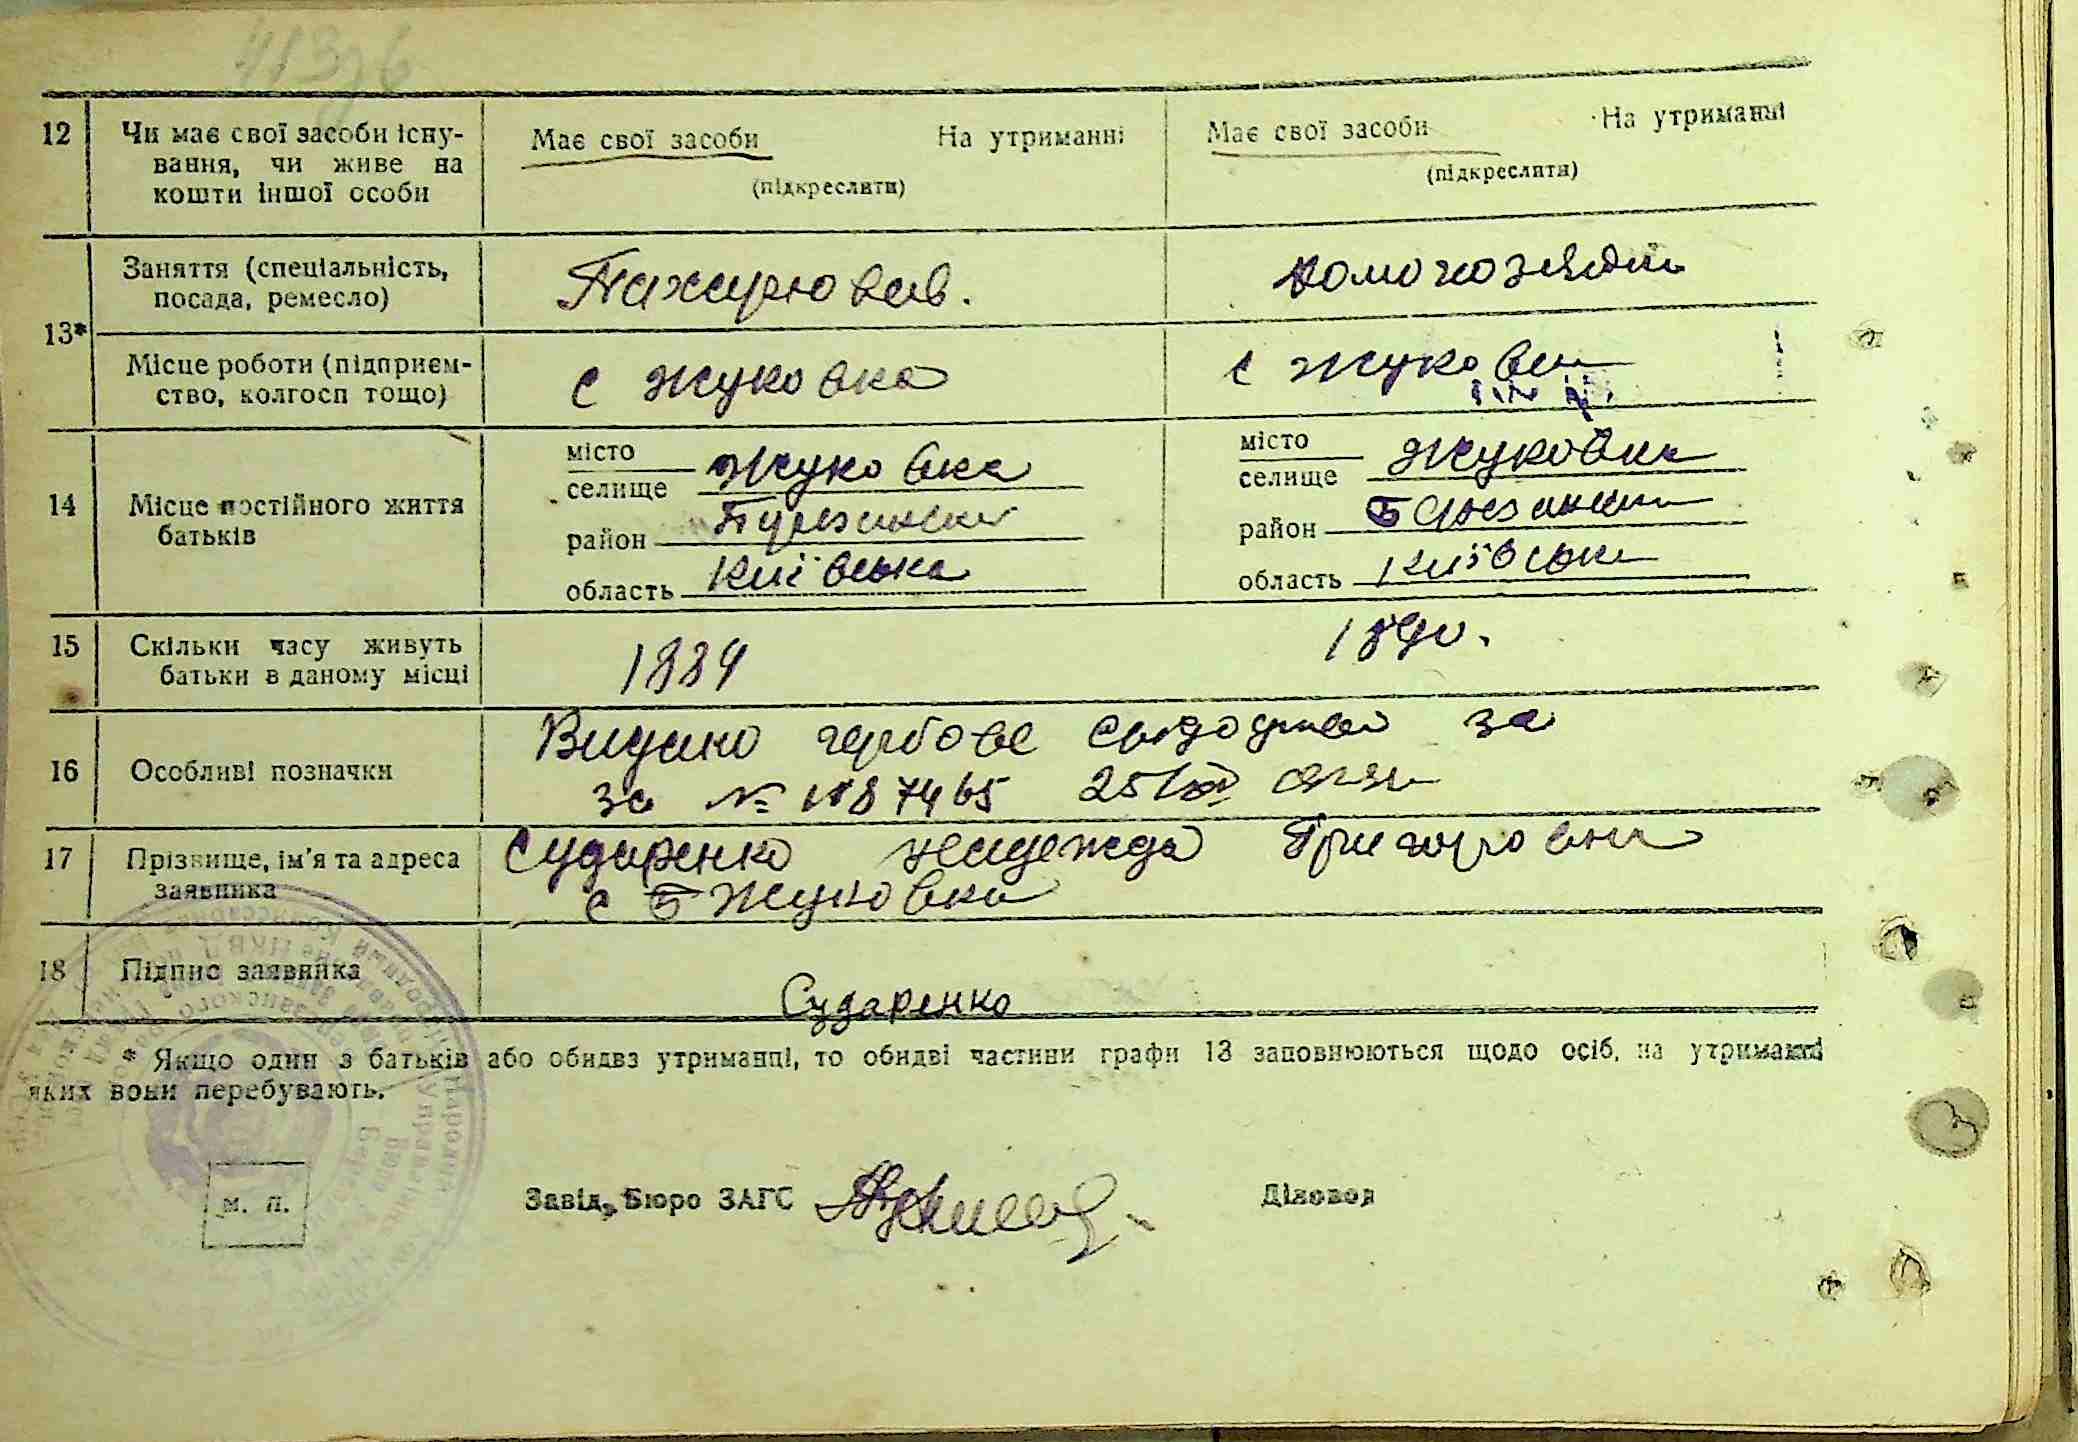 12
Чи має свої засоби існу-
вання, чи живе на
кошти іншої особи
Має свої засоби На утриманні
(підкреслити)
Має свої засоби На утриманні
(підкреслити)
13*
Заняття (спеціальність,
посада, ремесло)
домохозяйк
Місце роботи (підприєм-
ство, колгосп тощо)
с Жуковка
с Жуковка
14
Місце постійного життя
батьків
місто
селище Жуковка
район
область Київська
місто
селище Жуковка
район Березанський
область Київська
15
Скільки часу живуть
батьки в даному місці
1884
1890.
16
Особливі позначки
Видано гербове свідоцтво за
за №
17
Прізвище, ім'я та адреса
заявника
Сударенко Надежда Григоровна
с Б Жуковка
18
Підпис заявника
Сударенко
* Якщо один з батьків або обидва утриманці, то обидві частини графи 13 заповнюються щодо осіб, на утриманні
яких вони перебувають.
М. П.
Завід. Бюро ЗАГС
Діловод